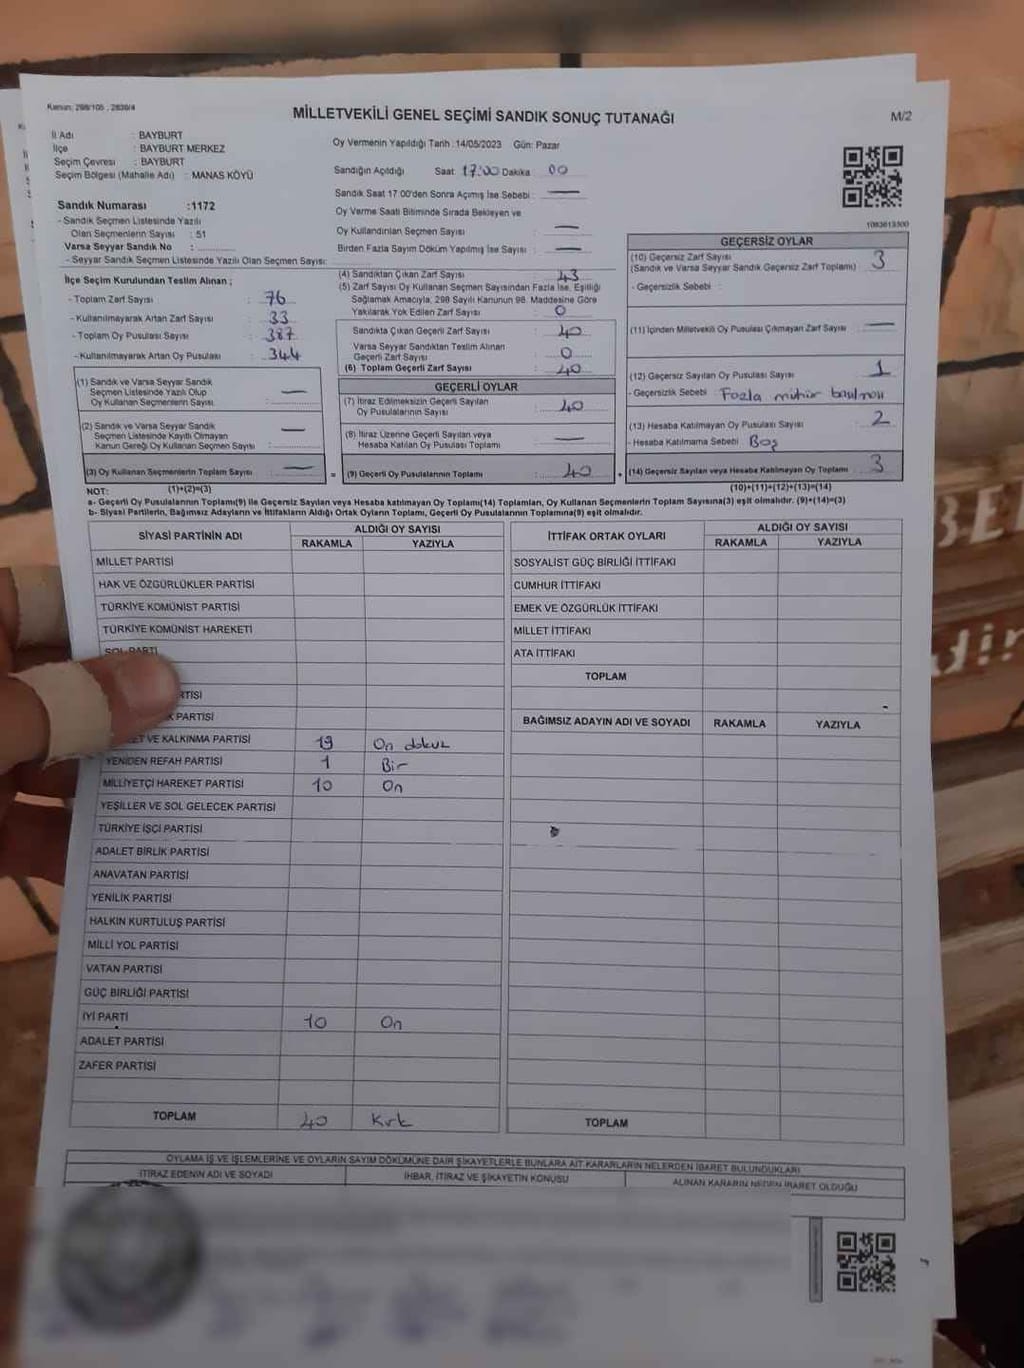 Kanun: 298/105 , 2839/4
MİLLETVEKİLİ GENEL SEÇİMİ SANDIK SONUÇ TUTANAĞI
M/2
İl Adı : BAYBURT
İlçe : BAYBURT MERKEZ
Seçim Çevresi : BAYBURT
Seçim Bölgesi (Mahalle Adı) : MANAS KÖYÜ
Sandık Numarası :1172
- Sandık Seçmen Listesinde Yazılı
Olan Seçmenlerin Sayısı : 51
Varsa Seyyar Sandık No :
- Seyyar Sandık Seçmen Listesinde Yazılı Olan Seçmen Sayısı:
Oy Vermenin Yapıldığı Tarih : 14/05/2023 Gün: Pazar
Sandığın Açıldığı Saat 17:00 Dakika 00
Sandık Saat 17.00'den Sonra Açımış İse Sebebi : —
Oy Verme Saati Bitiminde Sırada Bekleyen ve
Oy Kullandırılan Seçmen Sayısı : —
Birden Fazla Sayım Döküm Yapılmış İse Sayısı : —
1083613300
İlçe Seçim Kurulundan Teslim Alınan ;
- Toplam Zarf Sayısı : 76
- Kullanılmayarak Artan Zarf Sayısı : 33
- Toplam Oy Pusulası Sayısı : 387
- Kullanılmayarak Artan Oy Pusulası : 344
(1) Sandık ve Varsa Seyyar Sandık
Seçmen Listesinde Yazılı Olup
Oy Kullanan Seçmenlerin Sayısı : —
(2) Sandık ve Varsa Seyyar Sandık
Seçmen Listesinde Kayıtlı Olmayan
Kanun Gereği Oy Kullanan Seçmen Sayısı : —
(3) Oy Kullanan Seçmenlerin Toplam Sayısı : —
(4) Sandıktan Çıkan Zarf Sayısı : 43
(5) Zarf Sayısı Oy Kullanan Seçmen Sayısından Fazla İse, Eşitliği
Sağlamak Amacıyla, 298 Sayılı Kanunun 98. Maddesine Göre
Yakılarak Yok Edilen Zarf Sayısı : 0
Sandıkta Çıkan Geçerli Zarf Sayısı : 40
Varsa Seyyar Sandıktan Teslim Alınan
Geçerli Zarf Sayısı : 0
(6) Toplam Geçerli Zarf Sayısı : 40
GEÇERLİ OYLAR
(7) İtiraz Edilmeksizin Geçerli Sayılan
Oy Pusulalarının Sayısı : 40
(8) İtiraz Üzerine Geçerli Sayılan veya
Hesaba Katılan Oy Pusulası Toplamı : —
= (9) Geçerli Oy Pusulalarının Toplamı : 40 +
GEÇERSİZ OYLAR
(10) Geçersiz Zarf Sayısı
(Sandık ve Varsa Seyyar Sandık Geçersiz Zarf Toplamı) : 3
- Geçersizlik Sebebi :
(11) İçinden Milletvekili Oy Pusulası Çıkmayan Zarf Sayısı : —
(12) Geçersiz Sayılan Oy Pusulası Sayısı : 1
- Geçersizlik Sebebi : Fazla mühür
(13) Hesaba Katılmayan Oy Pusulası Sayısı : 2
- Hesaba Katılmama Sebebi : Boş
(14) Geçersiz Sayılan veya Hesaba Katılmayan Oy Toplamı : 3
NOT: (1)+(2)=(3)
(10)+(11)+(12)+(13)=(14)
a- Geçerli Oy Pusulalarının Toplamı(9) ile Geçersiz Sayılan veya Hesaba katılmayan Oy Toplamı(14) Toplamları, Oy Kullanan Seçmenlerin Toplam Sayısına(3) eşit olmalıdır. (9)+(14)=(3)
b- Siyasi Partilerin, Bağımsız Adayların ve İttifakların Aldığı Ortak Oyların Toplamı, Geçerli Oy Pusulalarının Toplamına(9) eşit olmalıdır.
SİYASİ PARTİNİN ADI
ALDIĞI OY SAYISI
RAKAMLA YAZIYLA
MİLLET PARTİSİ
HAK VE ÖZGÜRLÜKLER PARTİSİ
TÜRKİYE KOMÜNİST PARTİSİ
TÜRKİYE KOMÜNİST HAREKETİ
SOL PARTİ
RTİSİ
K PARTİSİ
ET VE KALKINMA PARTİSİ 19 On dokuz
YENİDEN REFAH PARTİSİ 1 Bir
MİLLİYETÇİ HAREKET PARTİSİ 10 On
YEŞİLLER VE SOL GELECEK PARTİSİ
TÜRKİYE İŞÇİ PARTİSİ
ADALET BİRLİK PARTİSİ
ANAVATAN PARTİSİ
YENİLİK PARTİSİ
HALKIN KURTULUŞ PARTİSİ
MİLLİ YOL PARTİSİ
VATAN PARTİSİ
GÜÇ BİRLİĞİ PARTİSİ
İYİ PARTİ 10 On
ADALET PARTİSİ
ZAFER PARTİSİ
TOPLAM 40 Kırk
İTTİFAK ORTAK OYLARI
ALDIĞI OY SAYISI
RAKAMLA YAZIYLA
SOSYALİST GÜÇ BİRLİĞİ İTTİFAKI
CUMHUR İTTİFAKI
EMEK VE ÖZGÜRLÜK İTTİFAKI
MİLLET İTTİFAKI
ATA İTTİFAKI
TOPLAM
BAĞIMSIZ ADAYIN ADI VE SOYADI RAKAMLA YAZIYLA
TOPLAM
OYLAMA İŞ VE İŞLEMLERİNE VE OYLARIN SAYIM DÖKÜMÜNE DAİR ŞİKAYETLERLE BUNLARA AİT KARARLARIN NELERDEN İBARET BULUNDUKLARI
İTİRAZ EDENİN ADI VE SOYADI İHBAR, İTİRAZ VE ŞİKAYETİN KONUSU ALINAN KARARIN NEDEN İBARET OLDUĞU